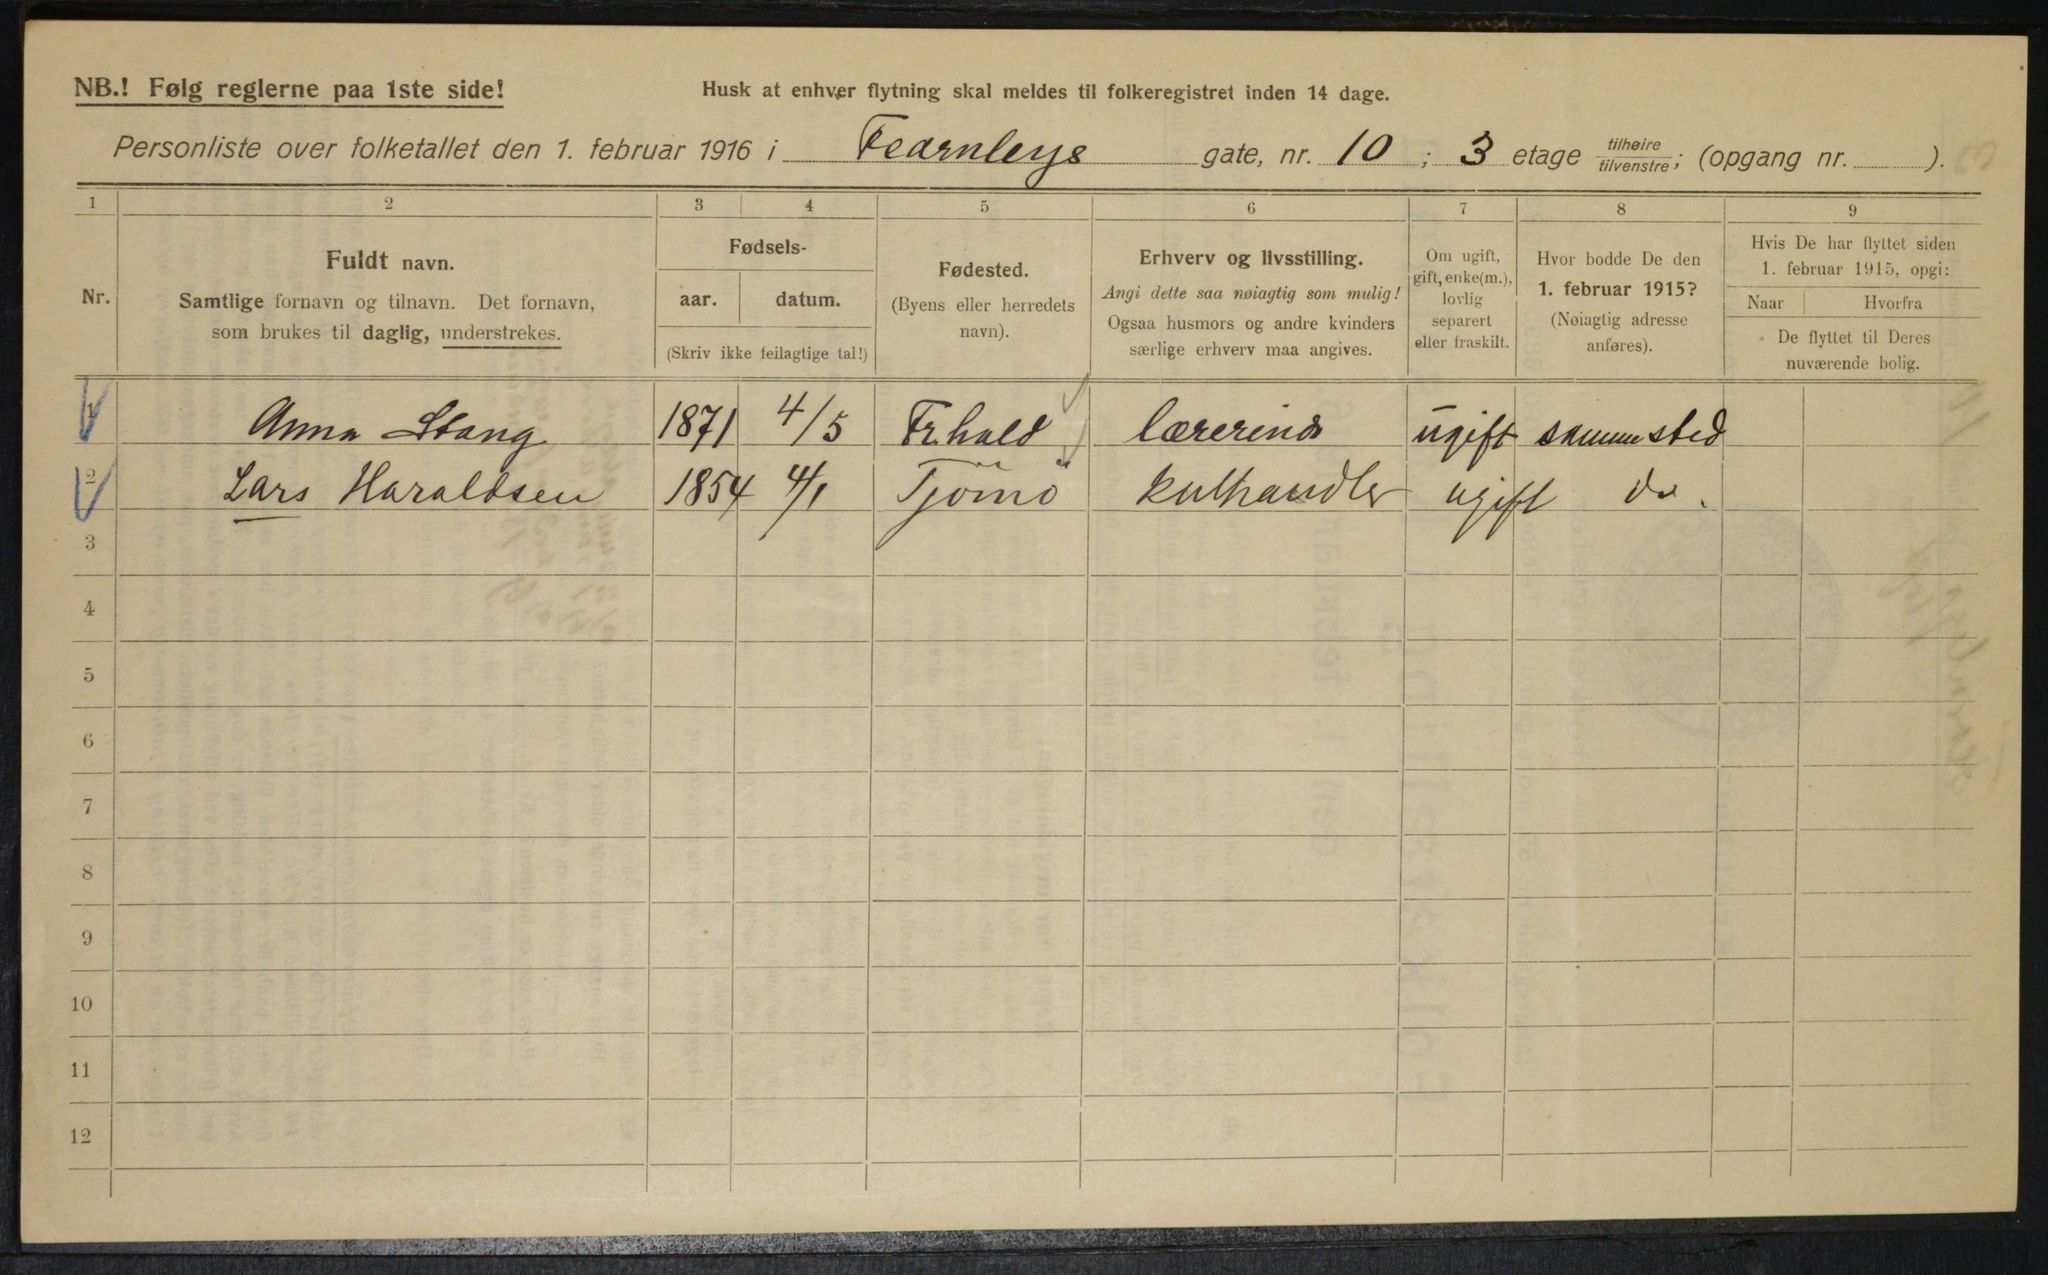 NB.! Følg reglerne paa 1ste side!
Husk at enhver flytning skal meldes til folkeregistret inden 14 dage.
Personliste over folketallet den 1. februar 1916 i Fearnleys gate, nr. 10 ; 3 etage tilhøire/tilvenstre; (opgang nr. ).
1 2 3 4 5 6 7 8 9
Nr.
Fuldt navn.
Samtlige fornavn og tilnavn. Det fornavn,
som brukes til daglig, understrekes.
Fødsels-
aar. datum.
(Skriv ikke feilagtige tal!)
Fødested.
(Byens eller herredets
navn).
Erhverv og livsstilling.
Angi dette saa nøiagtig som mulig!
Ogsaa husmors og andre kvinders
særlige erhverv maa angives.
Om ugift,
gift, enke(m.),
lovlig
separert
eller fraskilt.
Hvor bodde De den
1. februar 1915?
(Nøiagtig adresse
anføres).
Hvis De har flyttet siden
1. februar 1915, opgi:
Naar Hvorfra
De flyttet til Deres
nuværende bolig.
1 Anna Stang 1871 4/5 Fr.hald lærerinde ugift sammested
2 Lars Haraldsen 1854 4/1 Tjömö kulhandler ugift do.
3
4
5
6
7
8
9
10
11
12